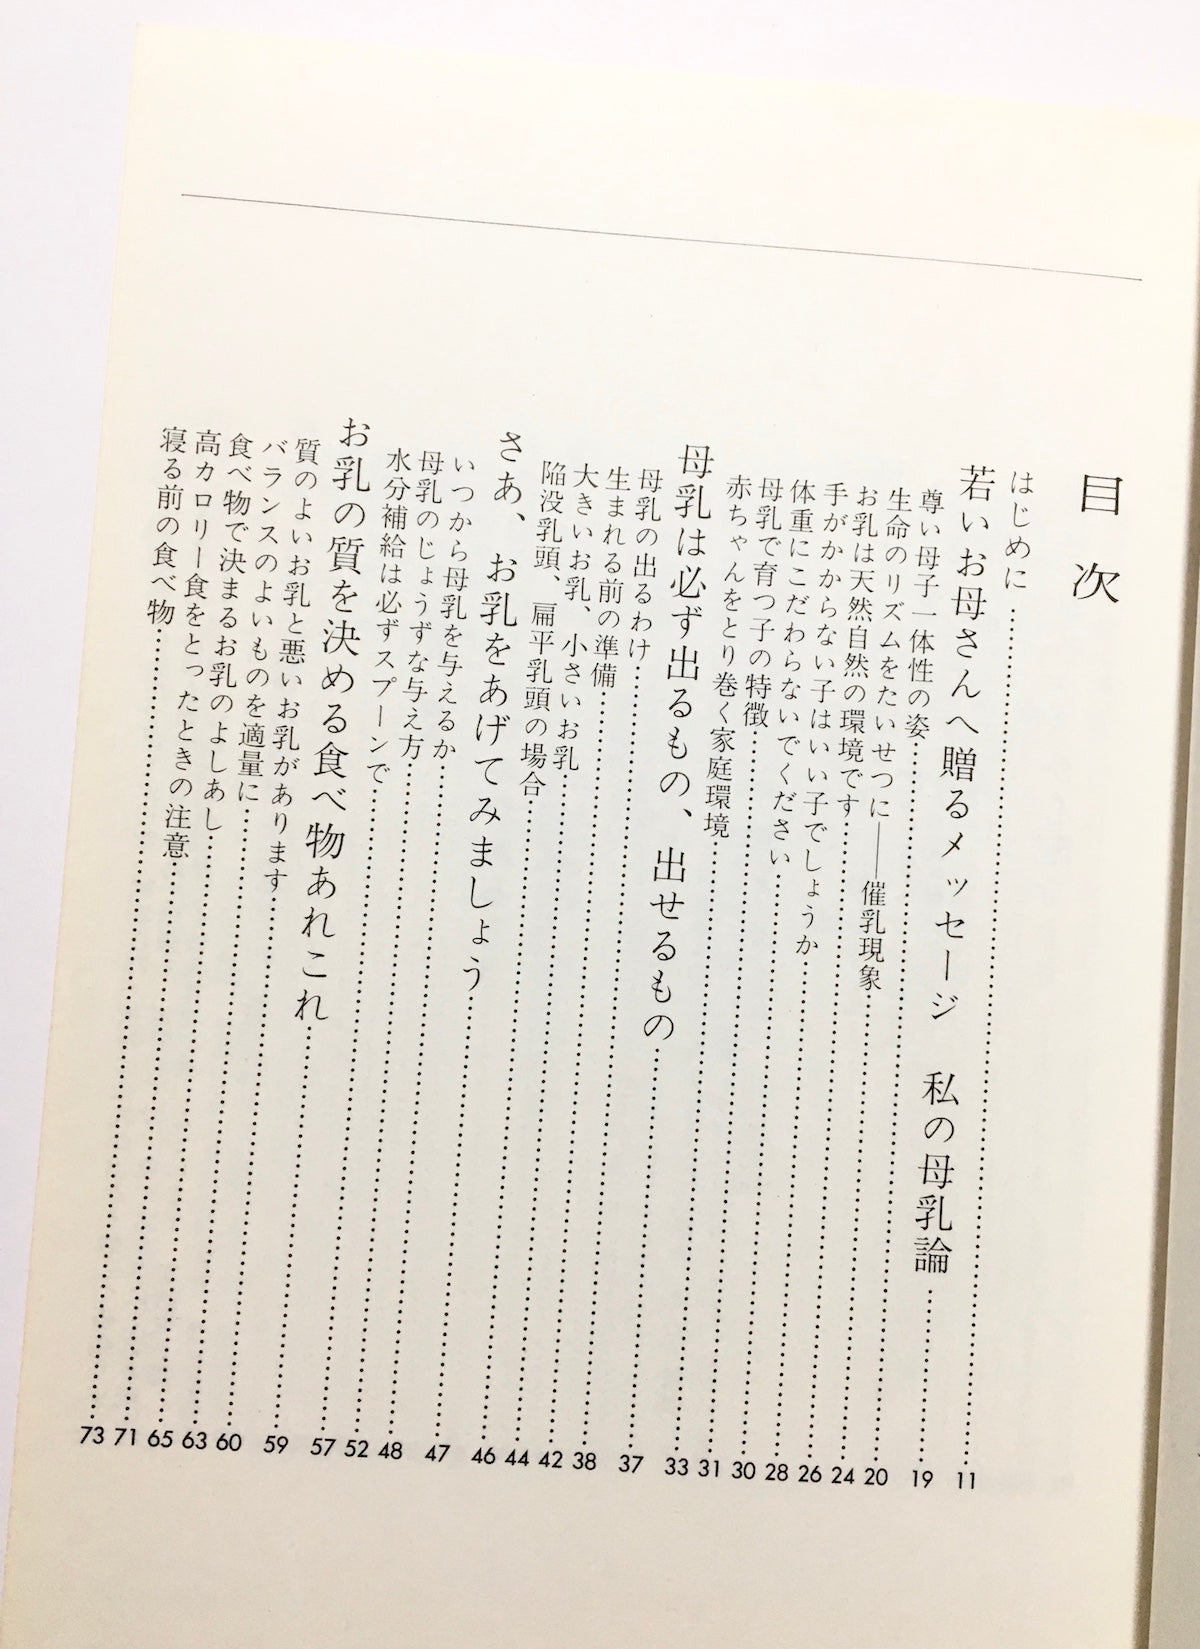 目次
はじめに……11
若いお母さんへ贈るメッセージ　私の母乳論……19
尊い母子一体性の姿……20
生命のリズムをたいせつに――催乳現象……24
お乳は天然自然の環境です……26
手がかからない子はいい子でしょうか……28
体重にこだわらないでください……30
母乳で育つ子の特徴……31
赤ちゃんをとり巻く家庭環境……33
母乳は必ず出るもの、出せるもの……37
母乳の出るわけ……38
生まれる前の準備……42
大きいお乳、小さいお乳……44
陥没乳頭、扁平乳頭の場合……46
さあ、お乳をあげてみましょう……47
いつから母乳を与えるか……48
母乳のじょうずな与え方……52
水分補給は必ずスプーンで……57
お乳の質を決める食べ物あれこれ……59
質のよいお乳と悪いお乳があります……60
バランスのよいものを適量に……63
食べ物で決まるお乳のよしあし……65
高カロリー食をとったときの注意……71
寝る前の食べ物……73